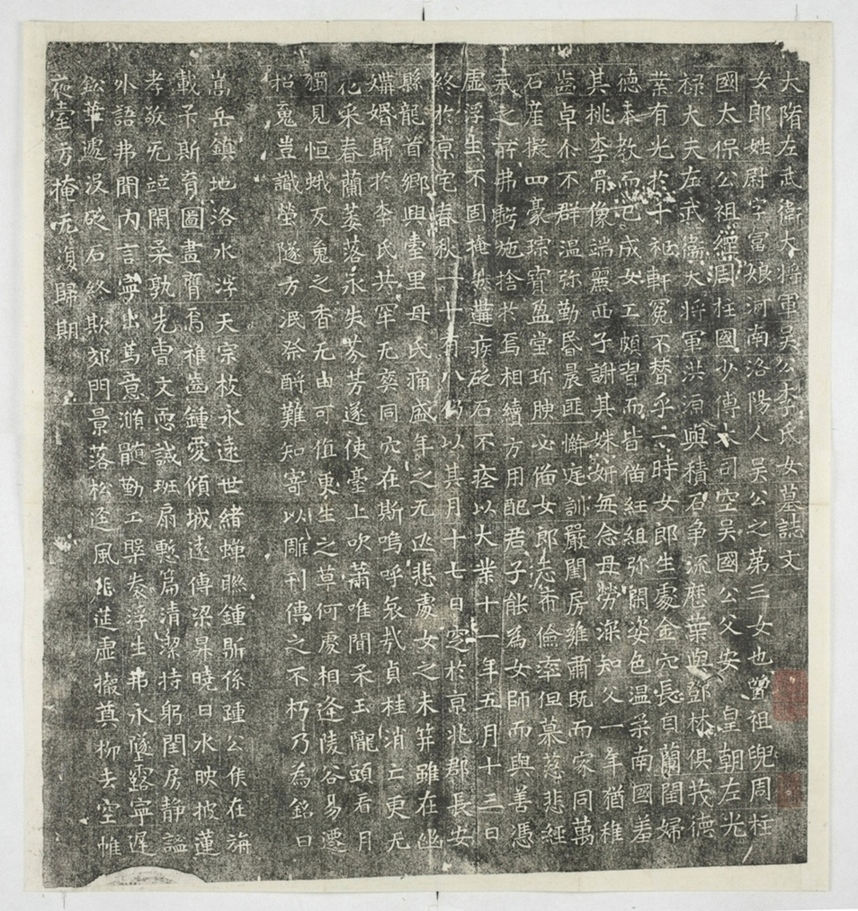 大隋左武衞大將軍吳公李氏女墓誌文
女郎姓尉字富娘河南洛陽人吳公之第三女也曾祖兜周柱
國太保公祖綱周柱國少傅大司空吳國公父安皇朝左光
祿大夫左武衞大將軍洪源與積石争流應葉與鄧林俱茂德
業有光於十祀軒冕不替乎一時女郎生處金穴長自蘭閨婦
德本教而已成女工頗習而皆備紝組弥閑姿色温柔南國羞
其桃李骨像端麗西子謝其姝妍每念母勞深知父一年猶稚
齒卓尒不群温弥勤昏晨匪懈庭訓嚴閨房雍肅既而家同萬
石産擬四豪琮寶盈堂珎腴必俻女郎志希儉率但慕慈悲經
戒之弗虧施捨於焉相續方用配君子能為女師而與善憑
虚浮生不固掩疾砭石不痊以大業十一年五月十三日
終於京宅春秋一十有八以其月十七日窆於京兆郡長安
縣龍首鄉興臺里母氏痛盛年之无匹悲處女之未笄雖在幽
媾婚歸於李氏共牢无爽同穴在斯嗚呼哀哉貞桂消亡更无
花采春蘭萎落永失芬芳遂使臺上吹簫唯聞柔玉隴頭看月
獨見恒娥反䰟之香无由可值更生之草何處相逢陵谷易遷
招䰟豈識塋隧方泯祭酹難知寄以雕刊傳之不朽乃為銘曰
嵩岳鎮地洛水浮天宗枝永遠世緒蟬聯鍾斯係踵公侯在旃
載子斯育圖畫膺焉稚齒鍾愛傾城遠傳梁昇曉日水映披蓮
孝敬旡竝閑柔孰先曹文惡誡班扇慙篇清潔持躬閨房静謐
外語弗聞内言寧出蔦意滫髓勤工漦浮生弗永墜露寧遲
鈆華遽没砭石終欺郊門景落松逕風飛莚虚撤奠柳去空帷
夜臺方掩无復歸期